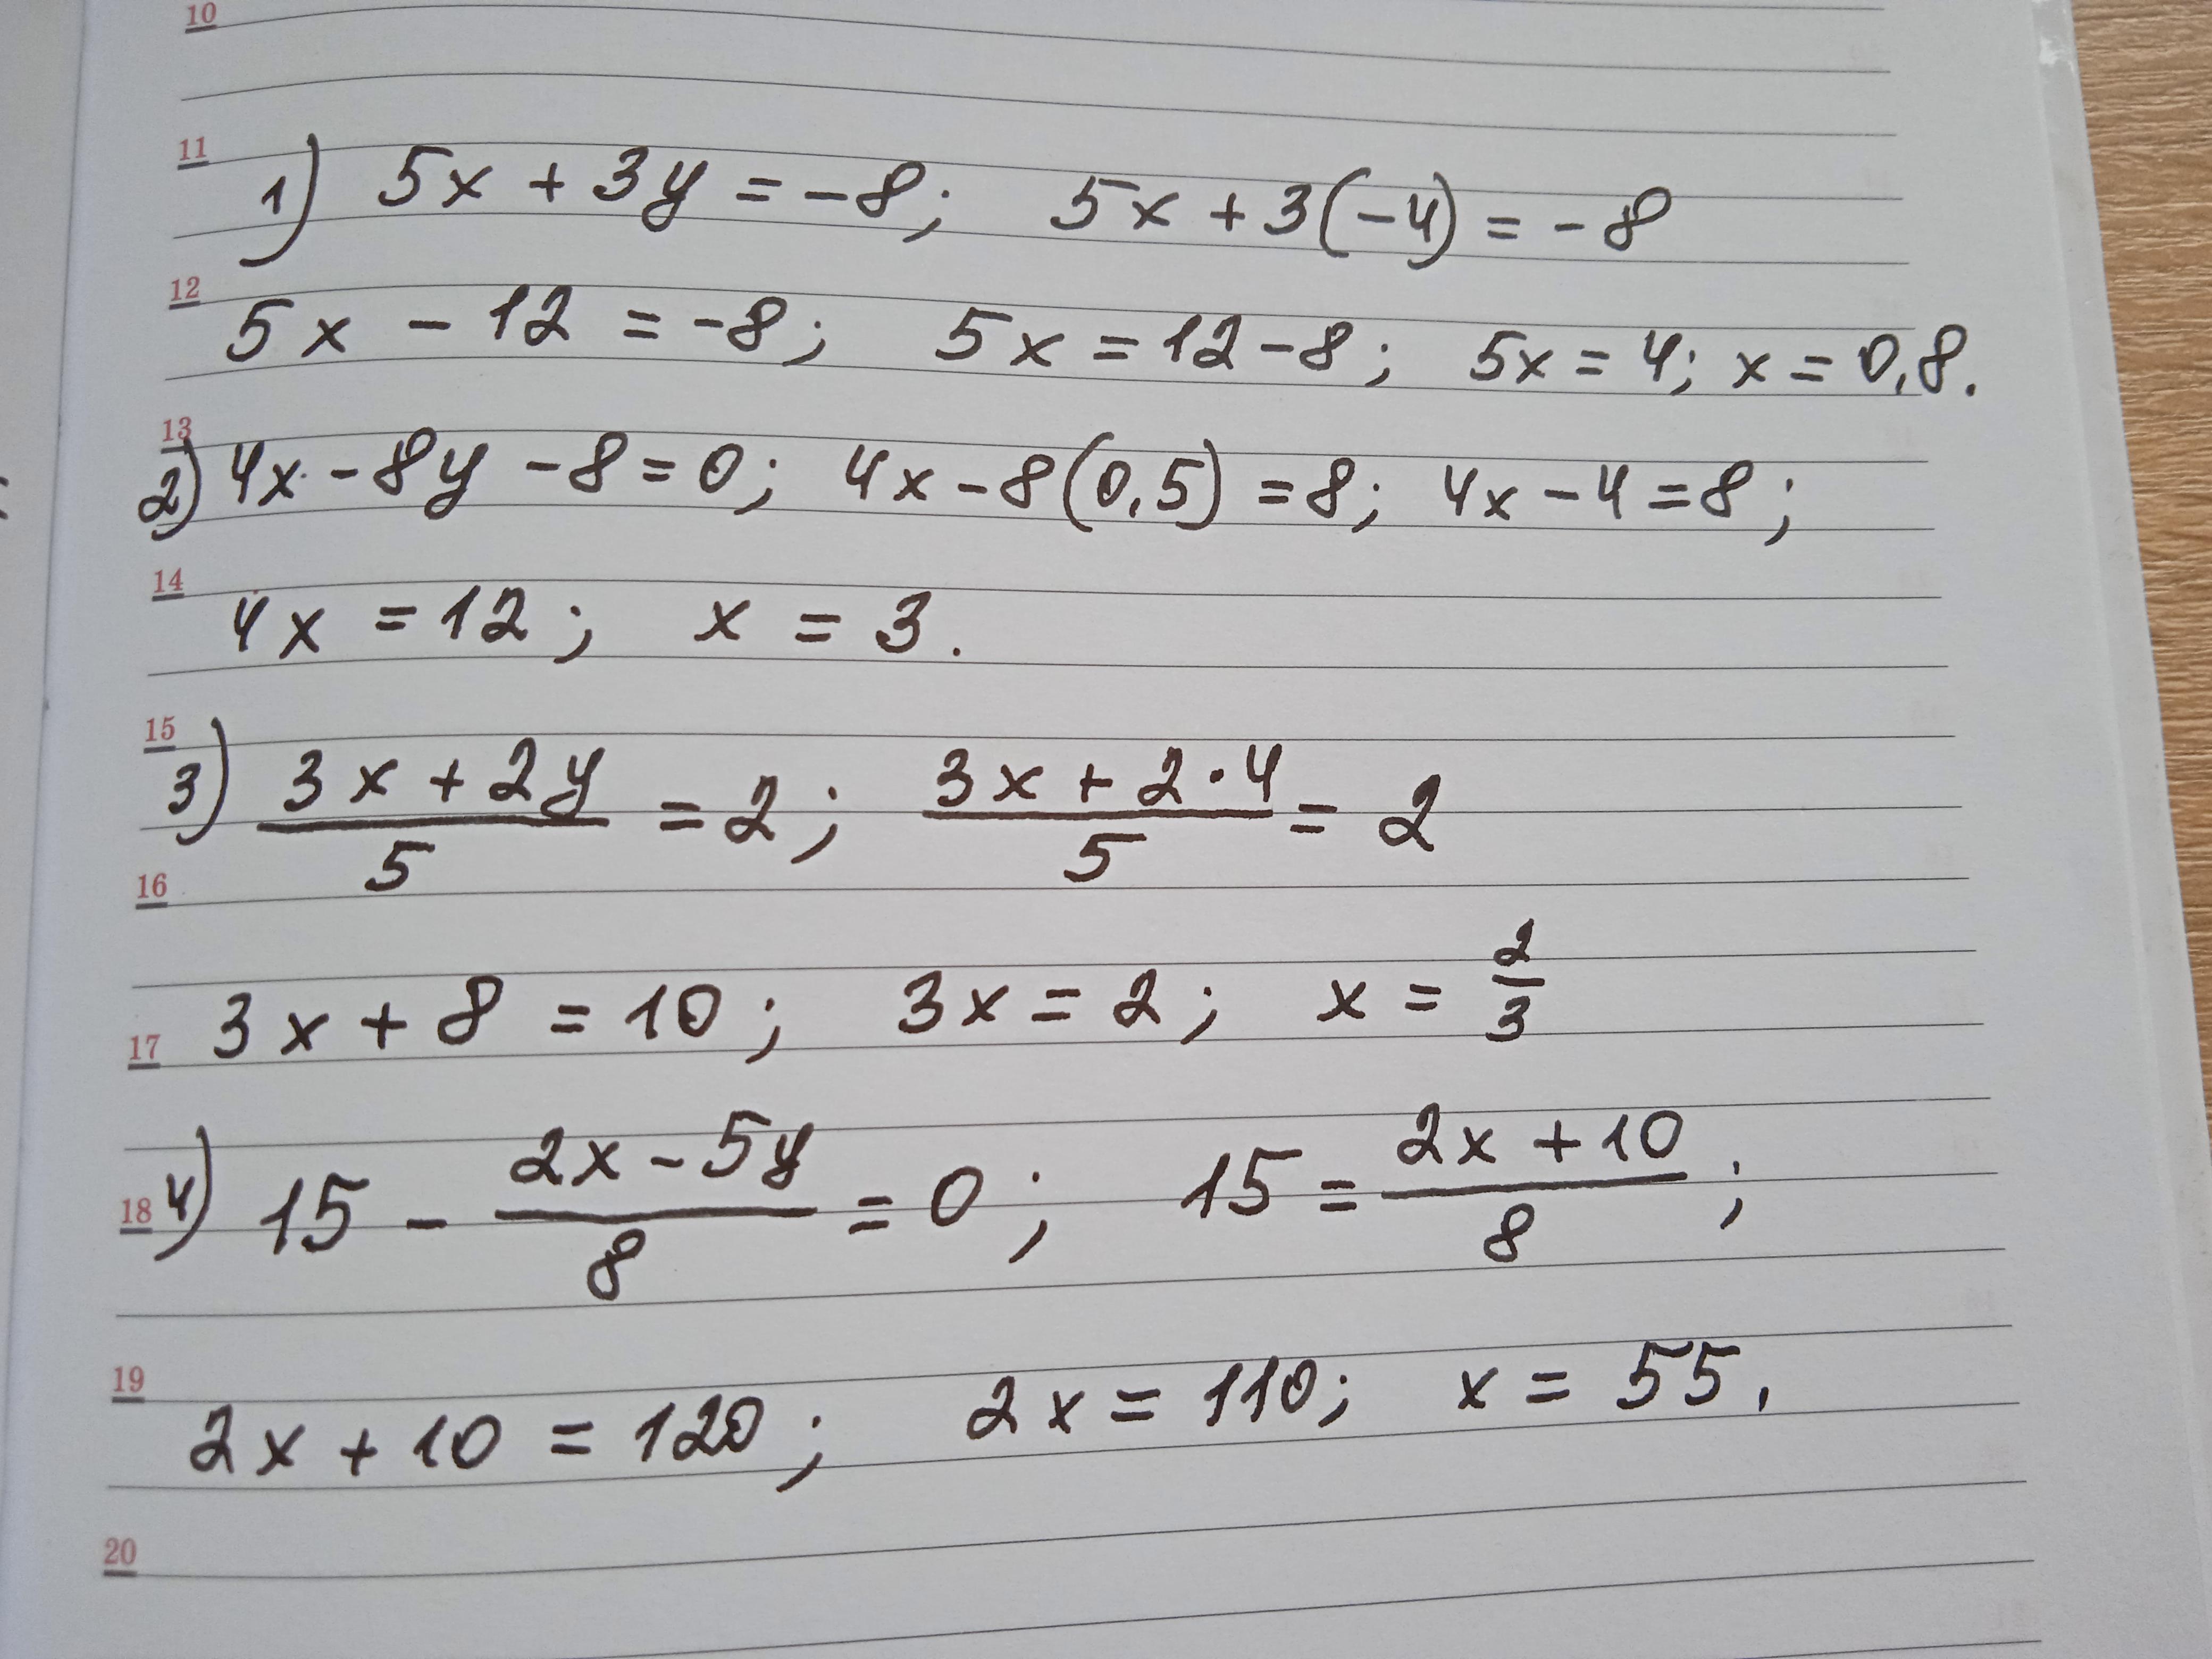 10
11
1) 5x + 3y = -8; 5x + 3(-4) = -8
12
5x - 12 = -8; 5x = 12 - 8; 5x = 4; x = 0,8.
13
2) 4x - 8y - 8 = 0; 4x - 8(0,5) = 8; 4x - 4 = 8;
14
4x = 12; x = 3.
15
3) \frac{3x + 2y}{5} = 2; \frac{3x + 2 \cdot 4}{5} = 2
16
3x + 8 = 10; 3x = 2; x = \frac{2}{3}
17
18
4) 15 - \frac{2x - 5y}{8} = 0; 15 = \frac{2x + 10}{8};
19
2x + 10 = 120; 2x = 110; x = 55.
20